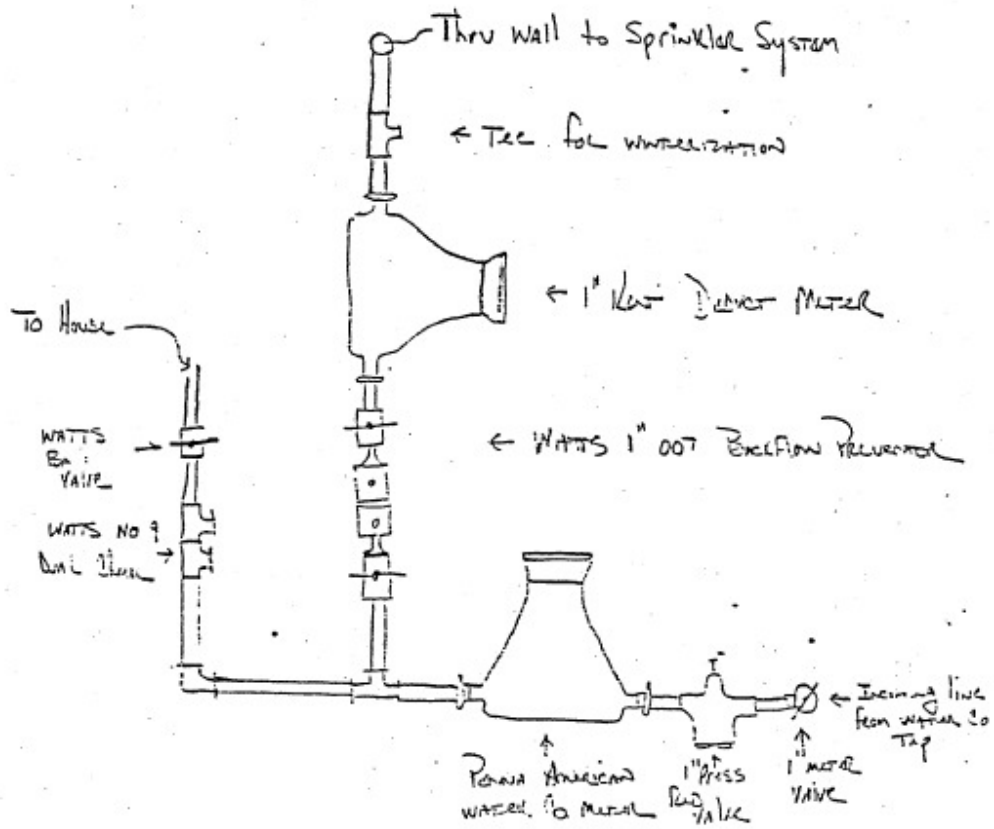 Thru Wall to Sprinkler System
← Tee for winterization
← 1" Kent Deduct Meter
To House
WATTS
Ball
Valve
← WATTS 1" 007 Backflow Preventor
WATTS No 9
Dual Check
← Incoming line
from water Co
Tap
Penna American
Water Co Meter
1" Press
Red
Valve
1" meter
Valve